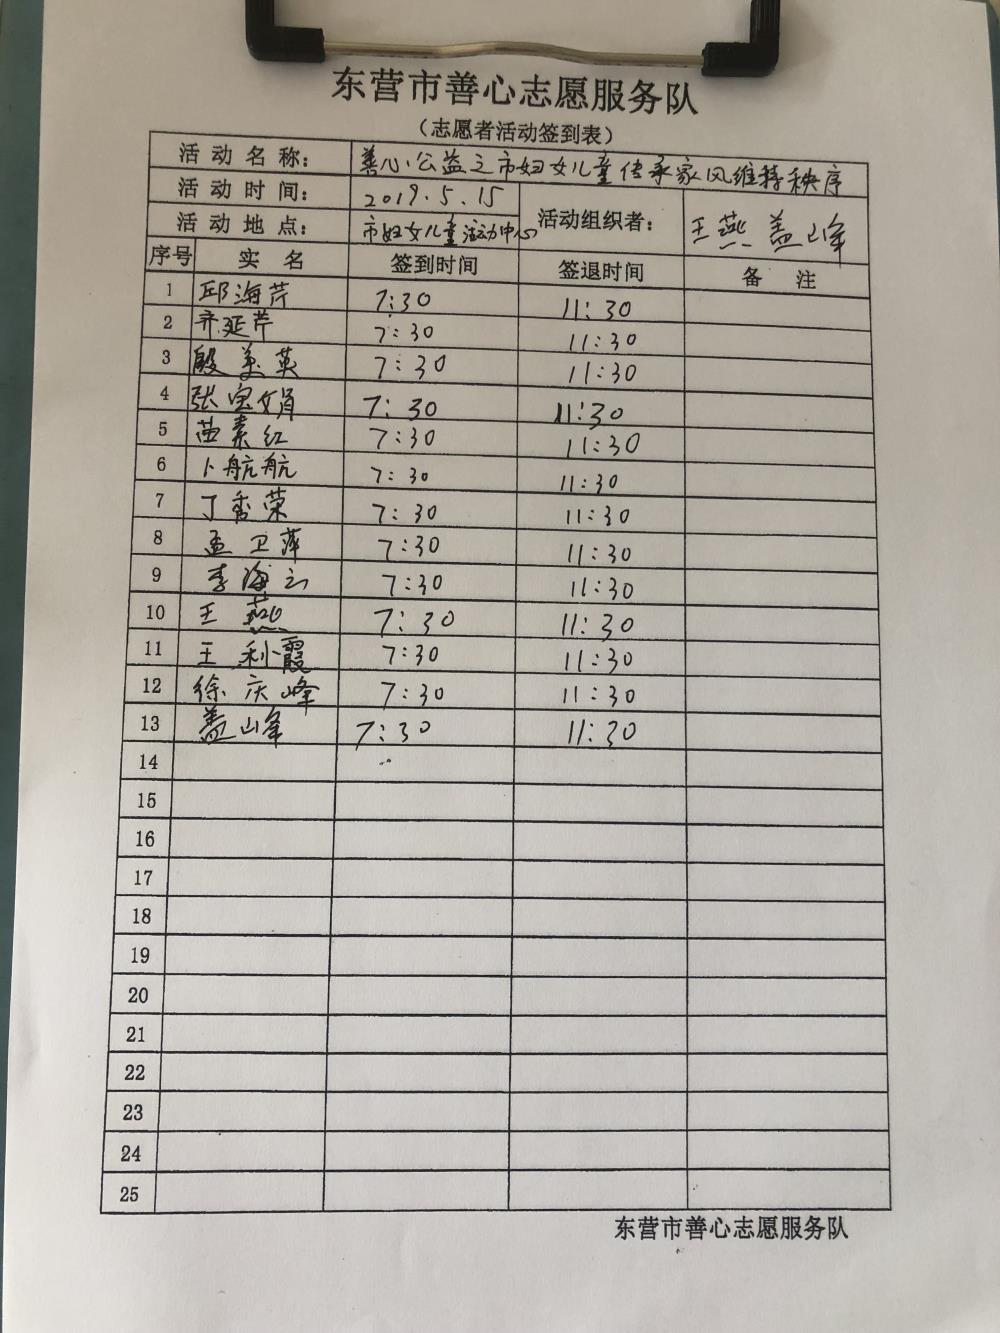 东营市善心志愿服务队
（志愿者活动签到表）
活动名称： 善心公益之市妇女儿童传承家风维持秩序
活动时间： 2019.5.15
活动地点： 市妇女儿童活动中心
活动组织者： 王燕 盖山峰
序号 实名 签到时间 签退时间 备注
1 邱海芹 7:30 11:30
2 齐延芹 7:30 11:30
3 殷美英 7:30 11:30
4 张宝娟 7:30 11:30
5 苗素红 7:30 11:30
6 卜航航 7:30 11:30
7 丁秀荣 7:30 11:30
8 孟卫萍 7:30 11:30
9 李海云 7:30 11:30
10 王燕 7:30 11:30
11 王利霞 7:30 11:30
12 徐庆峰 7:30 11:30
13 盖山峰 7:30 11:30
14
15
16
17
18
19
20
21
22
23
24
25
东营市善心志愿服务队